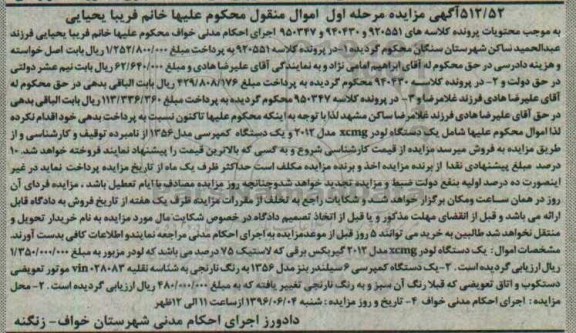 ۵۱۲/۵۲آگهی مزایده مرحله اول اموال منقول محکوم علیها خانم فریبا یحیایی
به موجب محتویات پرونده کلاسه های ۹۲۰۵۵۱ و ۹۴۰۴۳۰ و ۹۵۰۳۴۷ اجرای احکام مدنی خواف محکوم علیها خانم فریبا یحیایی فرزند
عبدالحمید ساکن شهرستان سنگان محکوم گردیده ۱- در پرونده کلاسه ۹۲۰۵۵۱ به پرداخت مبلغ ۱/۲۵۲/۸۰۰/۰۰۰ ریال بابت اصل خواسته
و هزینه دادرسی در حق محکوم له آقای ابراهیم امامی نژاد و به نمایندگی آقای علیرضا هادی و مبلغ ۶۲/۶۴۰/۰۰۰ ریال بابت نیم عشر دولتی
در حق دولت و ۲- در پرونده کلاسه ۹۴۰۴۳۰ محکوم گردیده به پرداخت مبلغ ۴۲۹/۸۰۸/۱۷۶ ریال بابت الباقی بدهی در حق محکوم له
آقای علیرضا هادی فرزند غلامرضا و ۳- در پرونده کلاسه ۹۵۰۳۴۷ محکوم گردیده به پرداخت مبلغ ۱۱۳/۳۳۶/۳۶۰ ریال بابت الباقی بدهی
در حق آقای علیرضا هادی فرزند غلامرضا ساکن مشهد لذا با توجه به اینکه محکوم علیها تاکنون نسبت به پرداخت بدهی خود اقدام نکرده
لذا اموال محکوم علیها شامل یک دستگاه لودر xcmg مدل ۲۰۱۳ و یک دستگاه کمپرسی مدل۱۳۵۶ از نامبرده توقیف و کارشناسی و از
طریق مزایده به فروش میرسد مزایده از قیمت کارشناسی شروع و به کسی که بالاترین قیمت را پیشنهاد نمایند فروخته خواهد شد. ۱۰
درصد مبلغ پیشنهادی نقدا از برنده مزایده اخذ و برنده مزایده مکلف است حداکثر ظرف یک ماه از تاریخ مزایده پرداخت نماید در غیر
اینصورت ده درصد اولیه بنفع دولت ضبط و مزایده تجدید خواهد شدوچنانچه روز مزایده مصادف با ایام تعطیل باشد ، مزایده فردای آن
روز در همان ساعت ومکان برگزار خواهد شد و شکایات راجع به تخلف از مقررات مزایده ظرف یک هفته از تاریخ فروش به دادگاه قابل
ارائه می باشد و قبل از انقضای مهلت مذکور و یا قبل از اتخاذ تصمیم دادگاه در خصوص شکایت مال مورد مزایده به نام خریدار تحویل و
منتقل نخواهد شد طالبین به خرید می توانند ۵ روز قبل از موعدمزایده به اجرای احکام مدنی مراجعه نمایندو اطلاعات کافی بدست آورند.
مشخصات اموال : یک دستگاه لودر xcmg مدل ۲۰۱۳ گیربکس برقی که لاستیک ۷۵ درصد می باشد که لودر مزبور به مبلغ ۱/۳۵۰/۰۰۰/۰۰۰
ریال ارزیابی گردیده است . ۲-یک دستگاه کمپرسی ۶سیلندر بنز مدل ۱۳۵۶ به رنگ نارنجی به شناسه نقلیه vin ۰۳۸۰۸۳ موتور تعویضی
دستکوب و اتاق تعویضی که قبلا رنگ آن سبز و به رنگ نارنجی تغییر یافته که به مبلغ ۴۸۰/۰۰۰/۰۰۰ ریال ارزیابی گردیده است . ۳- محل
مزایده : اجرای احکام مدنی خواف ۴- تاریخ و روز مزایده : شنبه ۱۳۹۶/۰۶/۰۴ ازساعت ۱۱ الی ۱۲ظهر
دادورز اجرای احکام مدنی شهرستان خواف- زنگنه